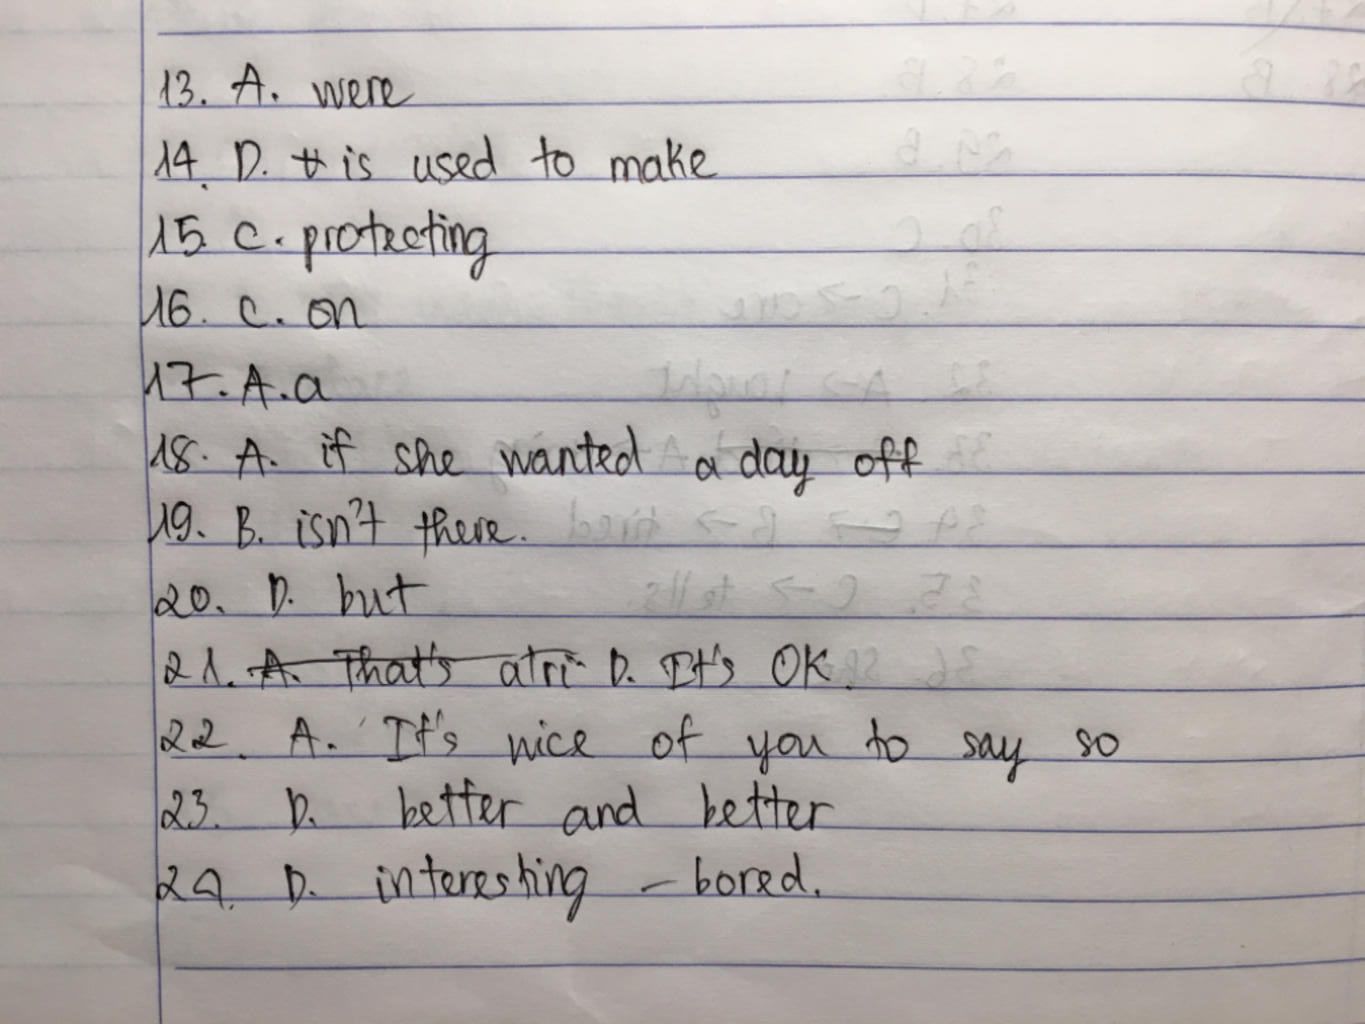 13. A. were
14. D. is used to make
15. C. protecting
16. C. on
17. A. a
18. A. if she wanted a day off
19. B. isn't there.
20. D. but
21. A. That's atri D. It's OK.
22. A. It's nice of you to say so
23. D. better and better
24. D. interesting - bored.